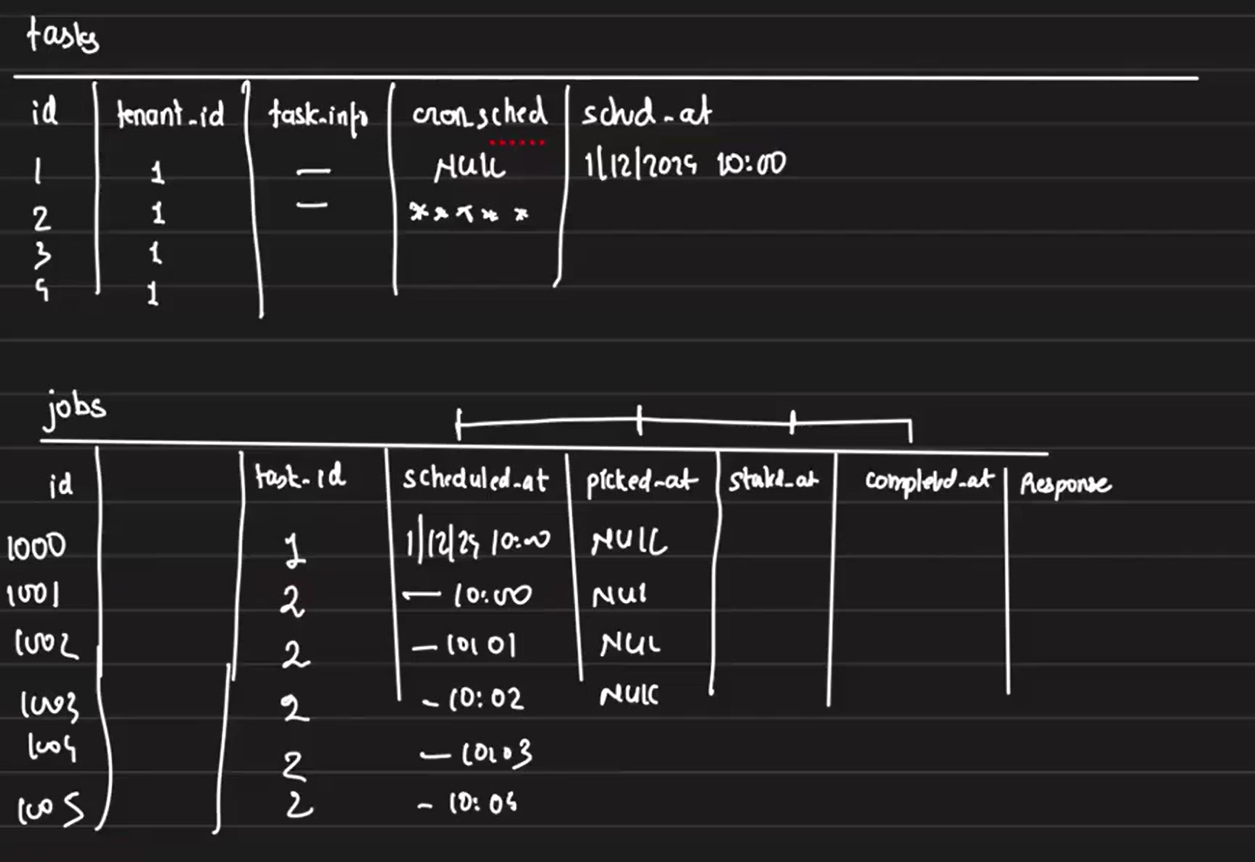 tasks
id tenant_id task_info cron_sched schd_at
1 1 NULL 1/12/2024 10:00
2 1 * * * * *
3 1
4 1
jobs
id task_id scheduled_at picked_at started_at completed_at Response
1000 1 1/12/24 10:00 NULL
1001 2 — 10:00 NUL
1002 2 — 10:01 NUL
1003 2 - 10:02 NULL
1004 2 — 10:03
1005 2 - 10:04